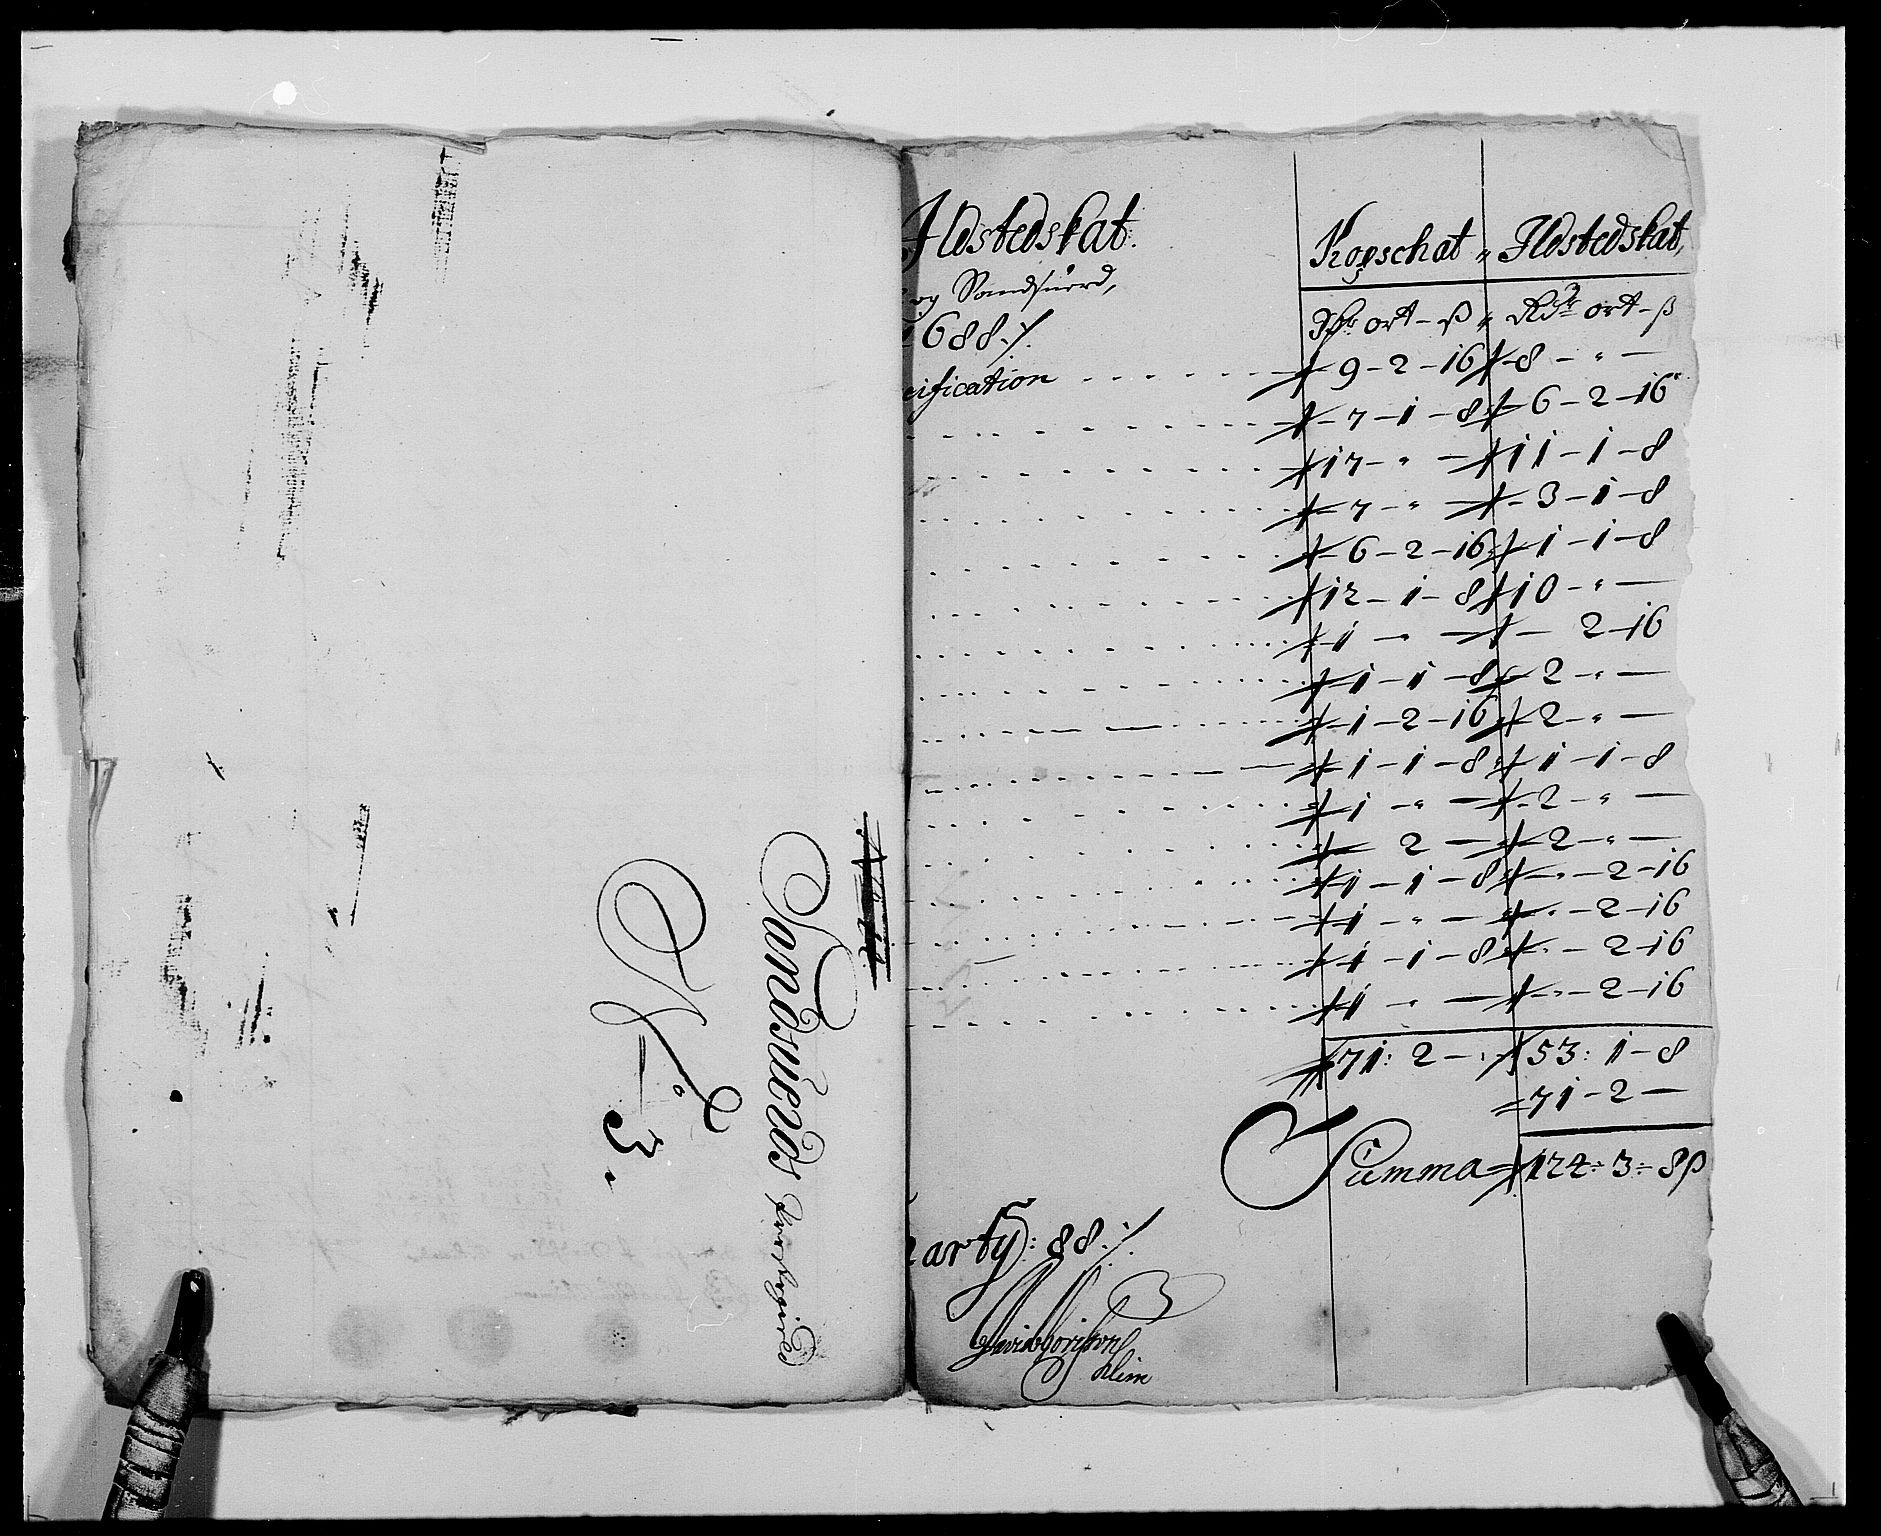 Sandsuerds
No 3.
Ildstedskat.
og Sandsuerd,
1688 ·/.
cification
Kopschat " Ildstedskat,
Rdr ort - ß " Rdr ort - ß
9 - 2 - 16 8 - " -
7 - 1 - 8 6 - 2 - 16
17 - " - 11 - 1 - 8
7 - " - 3 - 1 - 8
6 - 2 - 16 1 - 1 - 8
12 - 1 - 8 10 - " -
1 - " - - 2 - 16
1 - 1 - 8 2 - " -
1 - 2 - 16 2 - " -
1 - 1 - 8 1 - 1 - 8
1 - " - 2 - " -
2 - 2 - " -
1 - 1 - 8 " - 2 - 16
1 - " - " - 2 - 16
1 - 1 - 8 " - 2 - 16
1 - " - " - 2 - 16
71: 2 - 53: 1 - 8
71 - 2 -
Summa = 124 ÷ 3 ÷ 8 ß
arty: 88 ·/.